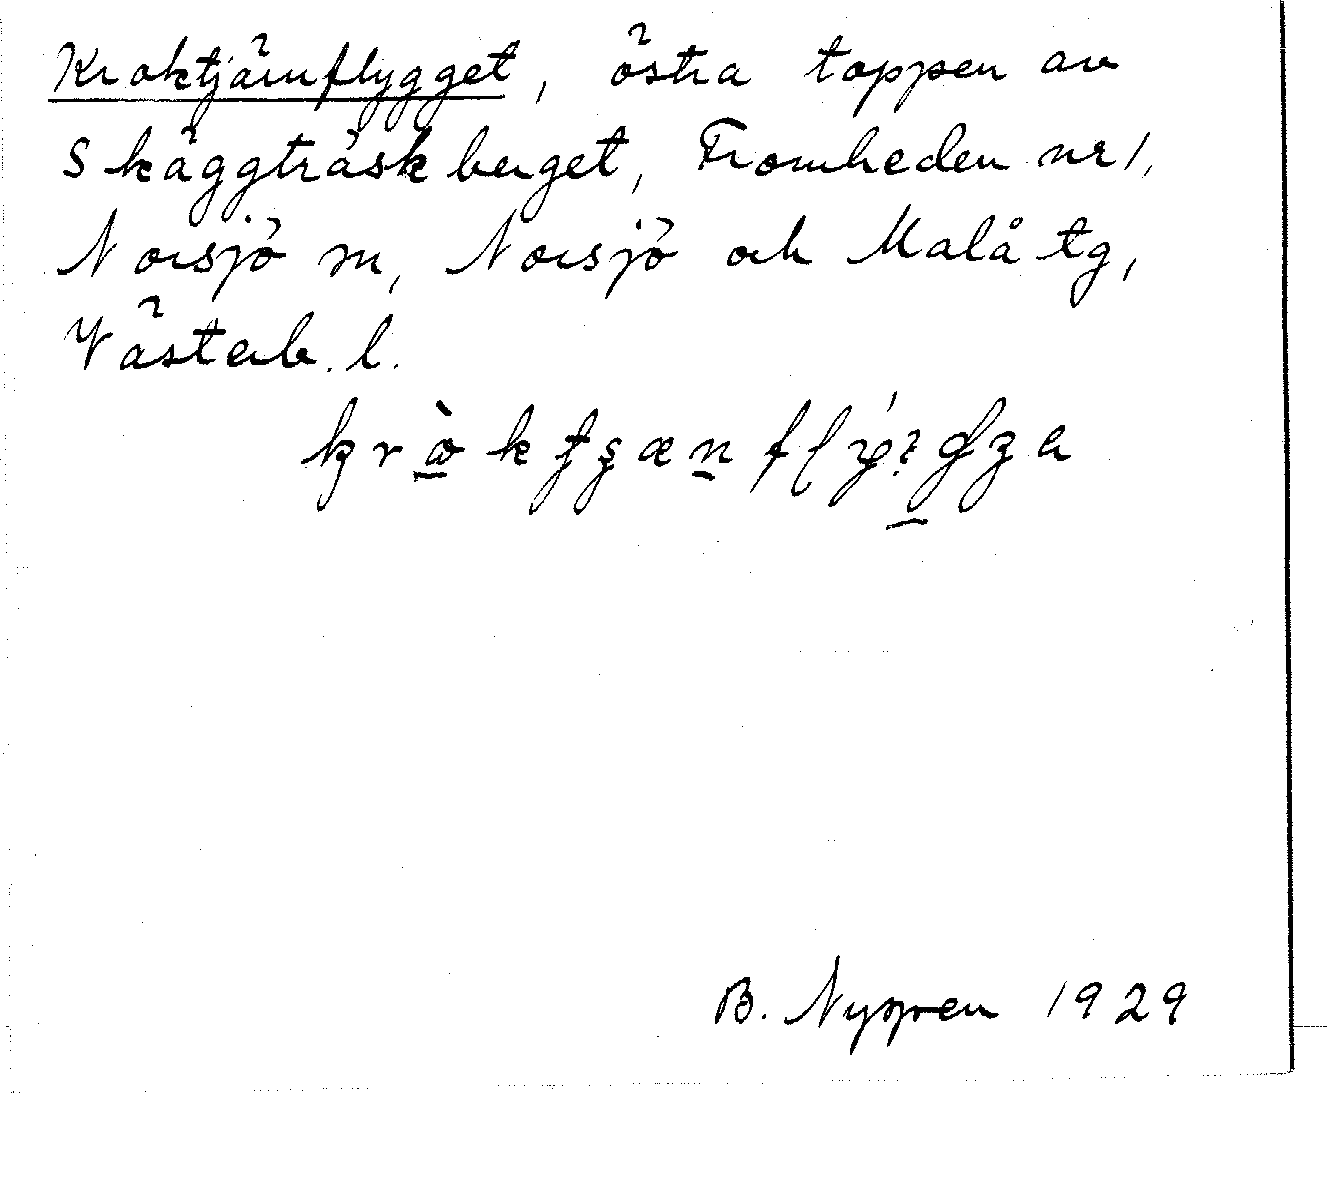 Kroktjärnflygget, östra toppen av
Skäggträskberget, Fromheden nr 1,
Norsjö sn, Norsjö och Malå tg,
Västerb. l.
B. Nygren 1929